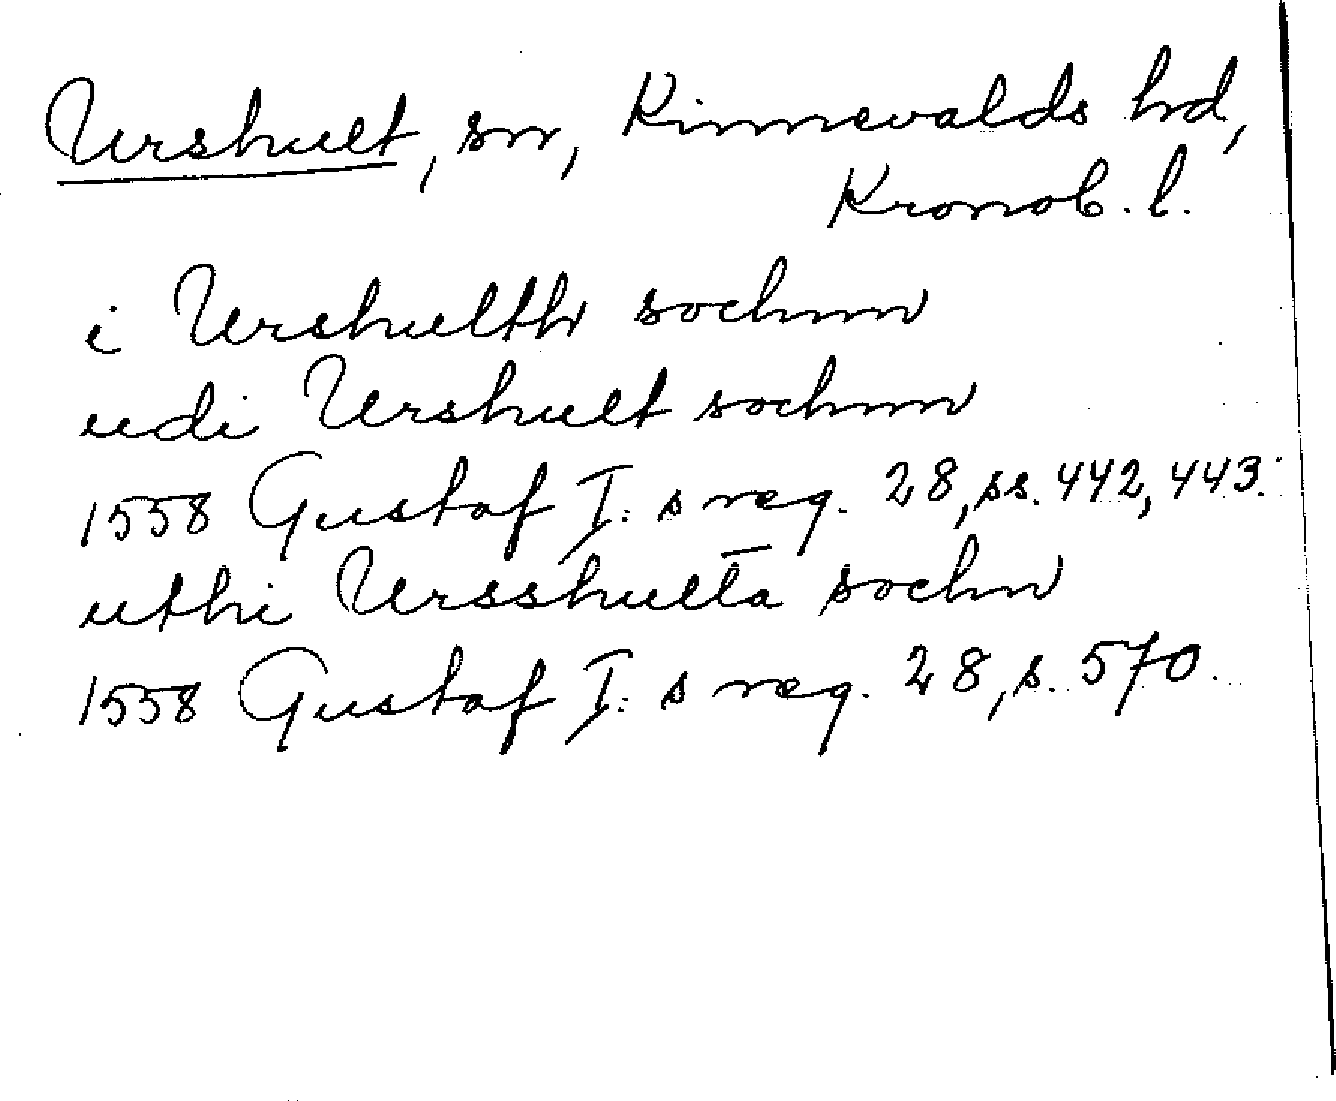 Urshult, sn, Kinnevalds hd,
Kronob. l.
i Urshulth sochnn
udi Urshult sochnn
1558 Gustaf I: s reg. 28, ss. 442, 443.
uthi Ursshulta sochn
1558 Gustaf I: s reg. 28, s. 570.